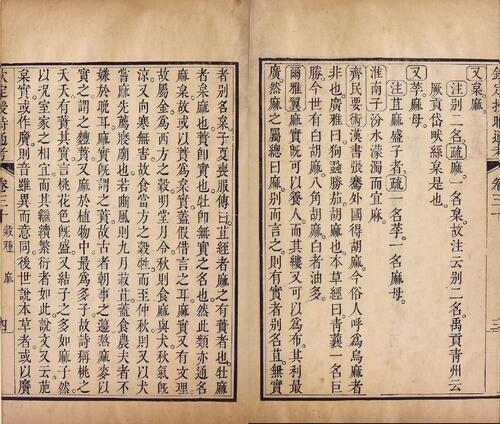 又枲麻。
注别二名。疏麻。一名枲。故注云别二名。禹貢青州云
厥貢岱畎絲枲是也。
又荸麻母。
注苴麻盛子者。疏一名荸。一名麻母。
淮南子汾水濛濁而宜麻。
齊民要術漢書張騫外國得胡麻。今俗人呼為烏麻者
非也。廣雅曰狗蝨勝茄。胡麻也。本草經曰青蘘一名巨
勝。今世有白胡麻。八角胡麻。白者油多。
爾雅翼麻實既可以養人。而其縷又可以為布。其利最
廣。然麻之屬總曰麻。别而言之。則有實者别名苴。無實
者别名枲。子夏喪服傳曰。苴絰者麻之有蕡者也。牡麻
者枲麻也。蕡即實也。牡即無實之名也。然此類亦通名
麻枲。故或以蕡為枲實。蓋假借言之耳。麻實又有文理。
故屬金為西方之穀。明堂月令。秋則食麻與犬。秋氣既
涼。又向寒無害。故食當方之穀牲。而至仲秋則又以犬
嘗麻。先薦寢廟也。若豳風則九月叔苴。蓋食農夫者不
嫌於晚耳。麻實既謂之蕡。故古者朝事之籩。熬麻麥以
實之。謂之麷蕡。又麻於植物中最為多子。故詩稱桃之
夭夭。有蕡其實。言桃花色既盛。又結子之多如麻子然。
以况室家之相宜。而其繼續繁衍者如此。說文又云萉
枲實或作黂。則音雖異而意同。後世說本草者或以黂
欽定授時通考
卷三十
穀種
麻
四